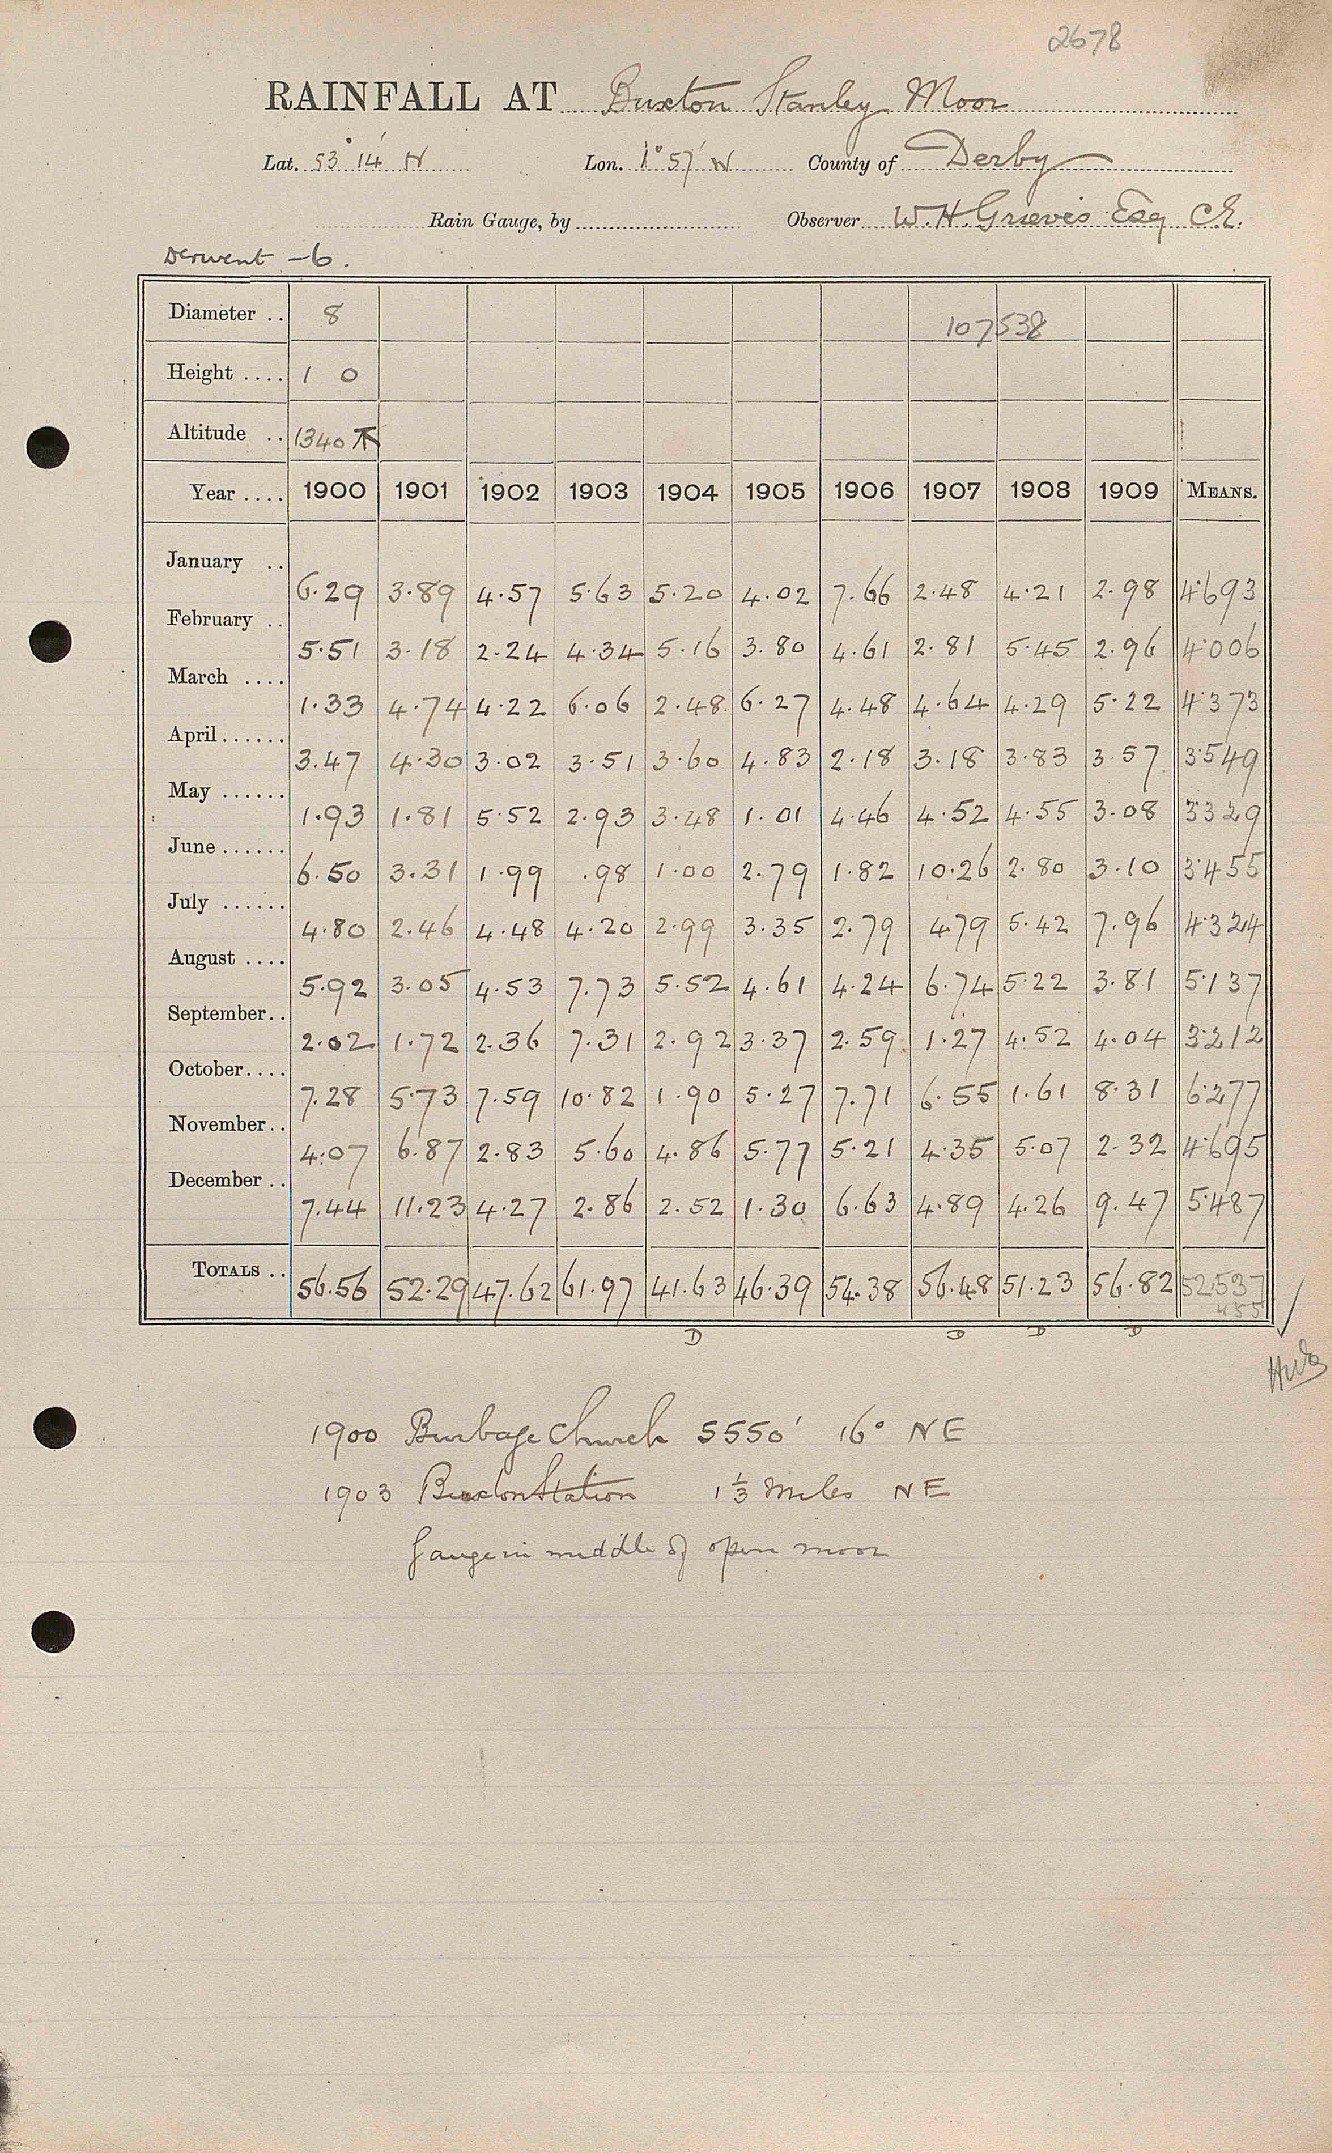 2678
RAINFALL AT Buxton Stanley Moor
Lat. 53° 14' N Lon. 1° 57' W County of Derby
Rain Gauge, by Observer W. H. Grieves Esq C.E.
Derwent - 6.
Diameter .. 8 107538
Height .... 1 0
Altitude .. 1340
Year .... 1900 1901 1902 1903 1904 1905 1906 1907 1908 1909 MEANS.
January .. 6.29 3.89 4.57 5.63 5.20 4.02 7.66 2.48 4.21 2.98 4.693
February .. 5.51 3.18 2.24 4.34 5.16 3.80 4.61 2.81 5.45 2.96 4.006
March .... 1.33 4.74 4.22 6.06 2.48 6.27 4.48 4.64 4.29 5.22 4.373
April ...... 3.47 4.30 3.02 3.51 3.60 4.83 2.18 3.18 3.83 3.57 3.549
May ...... 1.93 1.81 5.52 2.93 3.48 1.01 4.46 4.52 4.55 3.08 3.329
June ...... 6.50 3.31 1.99 .98 1.00 2.79 1.82 10.26 2.80 3.10 3.455
July ...... 4.80 2.46 4.48 4.20 2.99 3.35 2.79 4.79 5.42 7.96 4.324
August .... 5.92 3.05 4.53 7.73 5.52 4.61 4.24 6.74 5.22 3.81 5.137
September.. 2.02 1.72 2.36 7.31 2.92 3.37 2.59 1.27 4.52 4.04 3.212
October.... 7.28 5.73 7.59 10.82 1.90 5.27 7.71 6.55 1.61 8.31 6.277
November.. 4.07 6.87 2.83 5.60 4.86 5.77 5.21 4.35 5.07 2.32 4.695
December .. 7.44 11.23 4.27 2.86 2.52 1.30 6.63 4.89 4.26 9.47 5.487
TOTALS .. 56.56 52.29 47.62 61.97 41.63 46.39 54.38 56.48 51.23 56.82 52.537
455
D D D D
1900 Burbage Church 5550' 16° NE
1903 Buxton Station 1 1/3 Miles NE
Gauge in middle of open moor